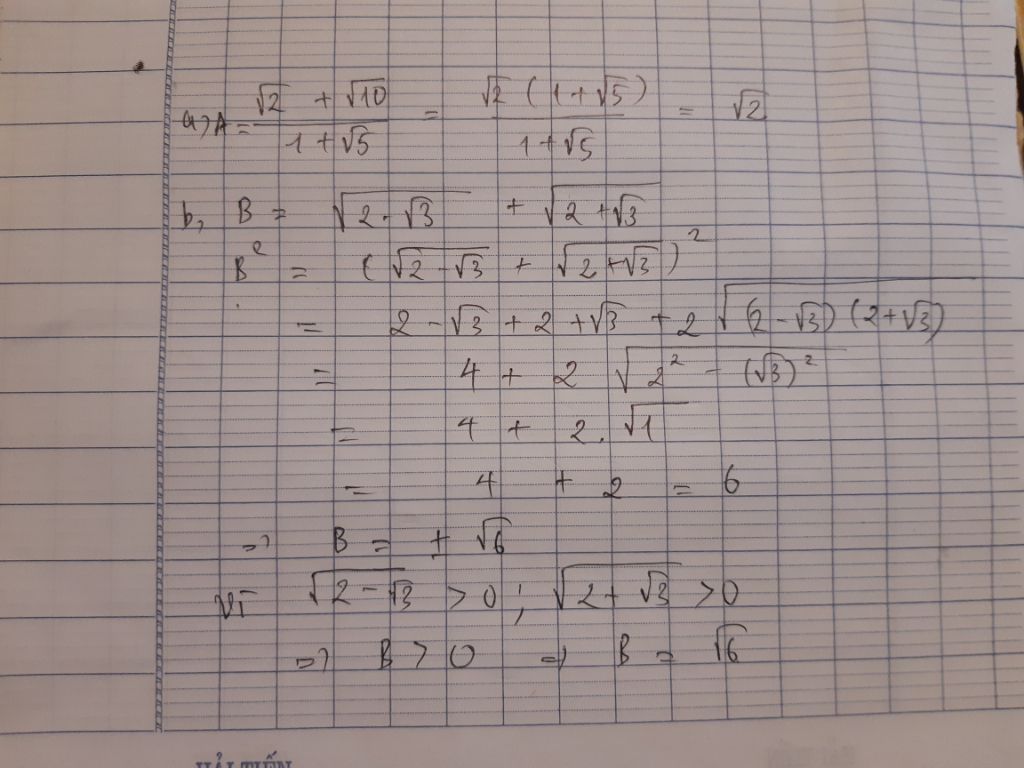 a) A = (√2 + √10)/(1 + √5) = (√2 (1 + √5))/(1 + √5) = √2
b, B = √(2 - √3) + √(2 + √3)
B² = (√(2 - √3) + √(2 + √3))²
= 2 - √3 + 2 + √3 + 2 √((2 - √3) (2 + √3))
= 4 + 2 √(2² - (√3)²)
= 4 + 2 . √1
= 4 + 2 = 6
=> B = ± √6
Vì √(2 - √3) > 0 ; √(2 + √3) > 0
=> B > 0 => B = √6
HẢI TIẾN